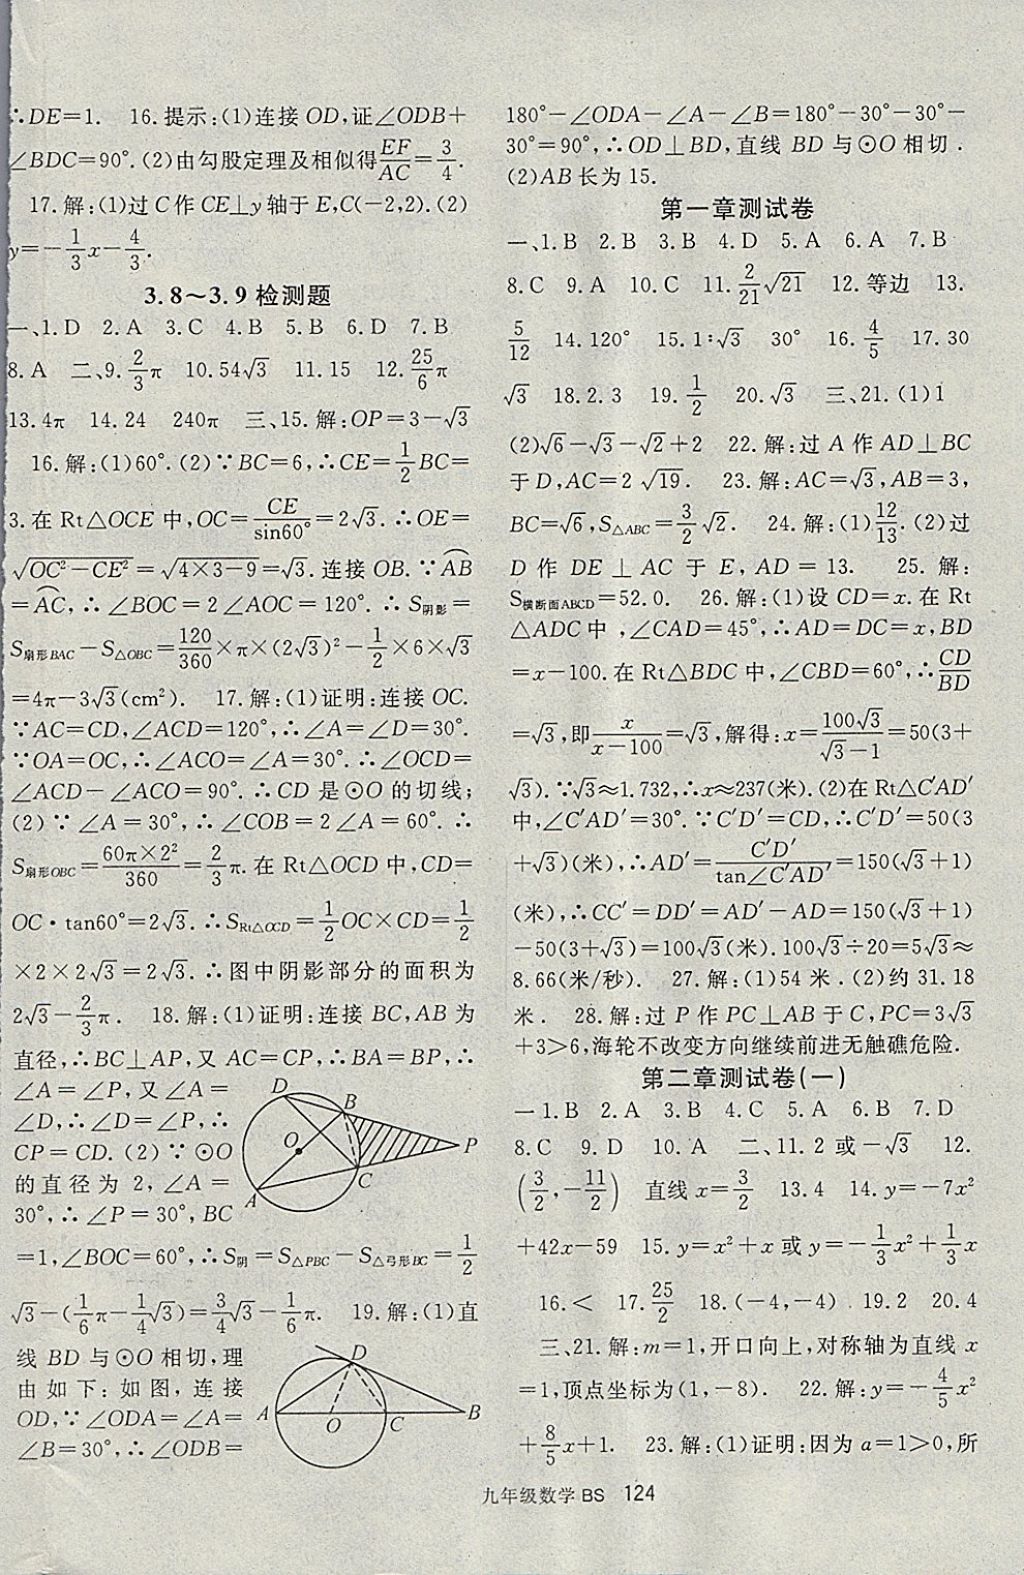 ∴DE=1.　16.提示:(1)连接OD,证∠ODB+
∠BDC=90°.(2)由勾股定理及相似得EF/AC=3/4.
17.解:(1)过C作CE⊥y轴于E,C(-2,2).(2)
y=-1/3x-4/3.
3.8～3.9检测题
一、1.D　2.A　3.C　4.B　5.B　6.D　7.B
8.A　二、9.2/3π　10.54√3　11.15　12.25/6π
13.4π　14.24　240π　三、15.解:OP=3-√3
16.解:(1)60°.(2)∵BC=6,∴CE=1/2BC=
3.在Rt△OCE中,OC=CE/sin60°=2√3.∴OE=
√(OC²-CE²)=√(4×3-9)=√3.连接OB.∵⌒AB
=⌒AC,∴∠BOC=2∠AOC=120°.∴S阴影=
S扇形BAC-S△OBC=120/360×π×(2√3)²-1/2×6×√3
=4π-3√3(cm²).　17.解:(1)证明:连接OC.
∵AC=CD,∠ACD=120°,∴∠A=∠D=30°.
∵OA=OC,∴∠ACO=∠A=30°.∴∠OCD=
∠ACD-∠ACO=90°.∴CD是⊙O的切线;
(2)∵∠A=30°,∴∠COB=2∠A=60°.∴
S扇形OBC=60π×2²/360=2/3π.在Rt△OCD中,CD=
OC·tan60°=2√3.∴SRt△OCD=1/2OC×CD=1/2
×2×2√3=2√3.∴图中阴影部分的面积为
2√3-2/3π.　18.解:(1)证明:连接BC,AB为
直径,∴BC⊥AP,又AC=CP,∴BA=BP,∴
∠A=∠P,又∠A=
∠D,∴∠D=∠P,∴
CP=CD.(2)∵⊙O
的直径为2,∠A=
30°,∴∠P=30°,BC
D B O P A C
=1,∠BOC=60°,∴S阴=S△PBC-S△弓形BC=1/2
√3-(1/6π-1/4√3)=3/4√3-1/6π.　19.解:(1)直
线BD与⊙O相切,理
由如下:如图,连接
OD,∵∠ODA=∠A=
∠B=30°,∴∠ODB=
D A O C B
180°-∠ODA-∠A-∠B=180°-30°-30°-
30°=90°,∴OD⊥BD,直线BD与⊙O相切.
(2)AB长为15.
第一章测试卷
一、1.B　2.B　3.B　4.D　5.A　6.A　7.B
8.C　9.A　10.C　11.2/21√21　12.等边　13.
5/12　14.120°　15.1∶√3　30°　16.4/5　17.30
√3　18.2.3　19.1/2　20.√3　三、21.(1)1
(2)√6-√3-√2+2　22.解:过A作AD⊥BC
于D,AC=2√19.　23.解:AC=√3,AB=3,
BC=√6,S△ABC=3/2√2.　24.解:(1)12/13.(2)过
D作DE⊥AC于E,AD=13.　25.解:
S横断面ABCD=52.0.　26.解:(1)设CD=x.在Rt
△ADC中,∠CAD=45°,∴AD=DC=x,BD
=x-100.在Rt△BDC中,∠CBD=60°,∴CD/BD
=√3,即x/(x-100)=√3,解得:x=100√3/(√3-1)=50(3+
√3).∵√3≈1.732,∴x≈237(米).(2)在Rt△C′AD′
中,∠C′AD′=30°.∵C′D′=CD,∴C′D′=50(3
+√3)(米),∴AD′=C′D′/tan∠C′AD′=150(√3+1)
(米),∴CC′=DD′=AD′-AD=150(√3+1)
-50(3+√3)=100√3(米).100√3÷20=5√3≈
8.66(米/秒).　27.解:(1)54米.(2)约31.18
米.　28.解:过P作PC⊥AB于C,PC=3√3
+3>6,海轮不改变方向继续前进无触礁危险.
第二章测试卷(一)
一1.B　2.A　3.B　4.C　5.A　6.B　7.D
8.C　9.D　10.A　二、11.2或-√3　12.
(3/2,-11/2)　直线x=3/2　13.4　14.y=-7x²
+42x-59　15.y=x²+x或y=-1/3x²+1/3x
16.<　17.25/2　18.(-4,-4)　19.2　20.4
三、21.解:m=1,开口向上,对称轴为直线x
=1,顶点坐标为(1,-8).　22.解:y=-4/5x²
+8/5x+1.　23.解:(1)证明:因为a=1>0,所
九年级数学 BS　124